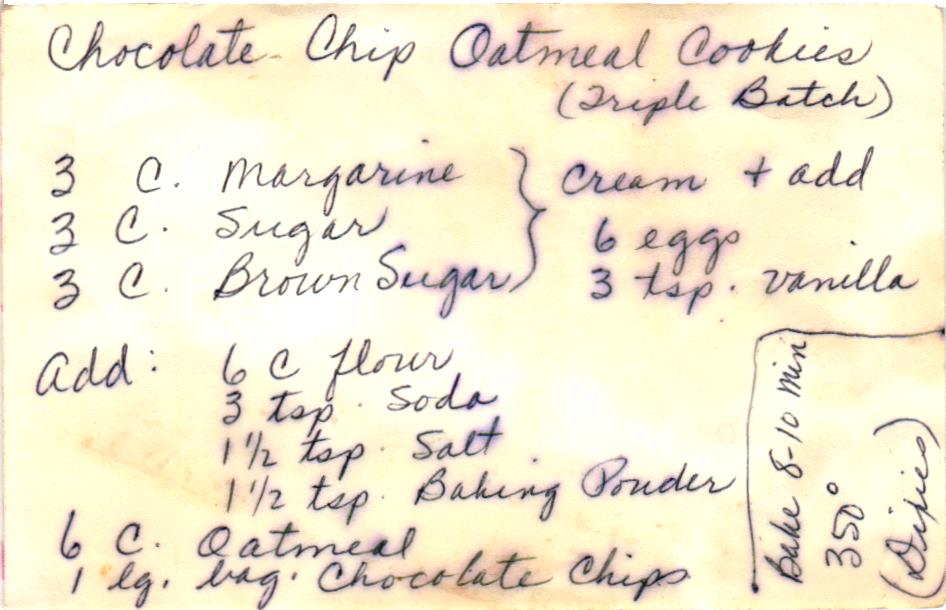 Chocolate Chip Oatmeal Cookies
(Triple Batch)
3 C. Margarine } cream + add
3 C. Sugar 6 eggs
3 C. Brown Sugar 3 tsp. vanilla
Add: 6 C flour
3 tsp. Soda
1 1/2 tsp. Salt
1 1/2 tsp. Baking Powder
6 C. Oatmeal
1 lg. bag. Chocolate Chips
Bake 8-10 min
350°